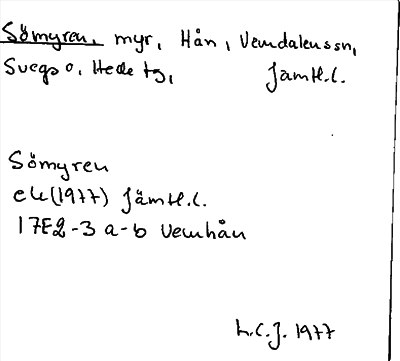 Sömyren, myr, Hån, Vemdalenssn,
Svegs o. Hede tg, Jämtl.l.
Sömyren
ek (1977) Jämtl.l.
17E2-3 a-b Vemhån
L.C.J. 1977